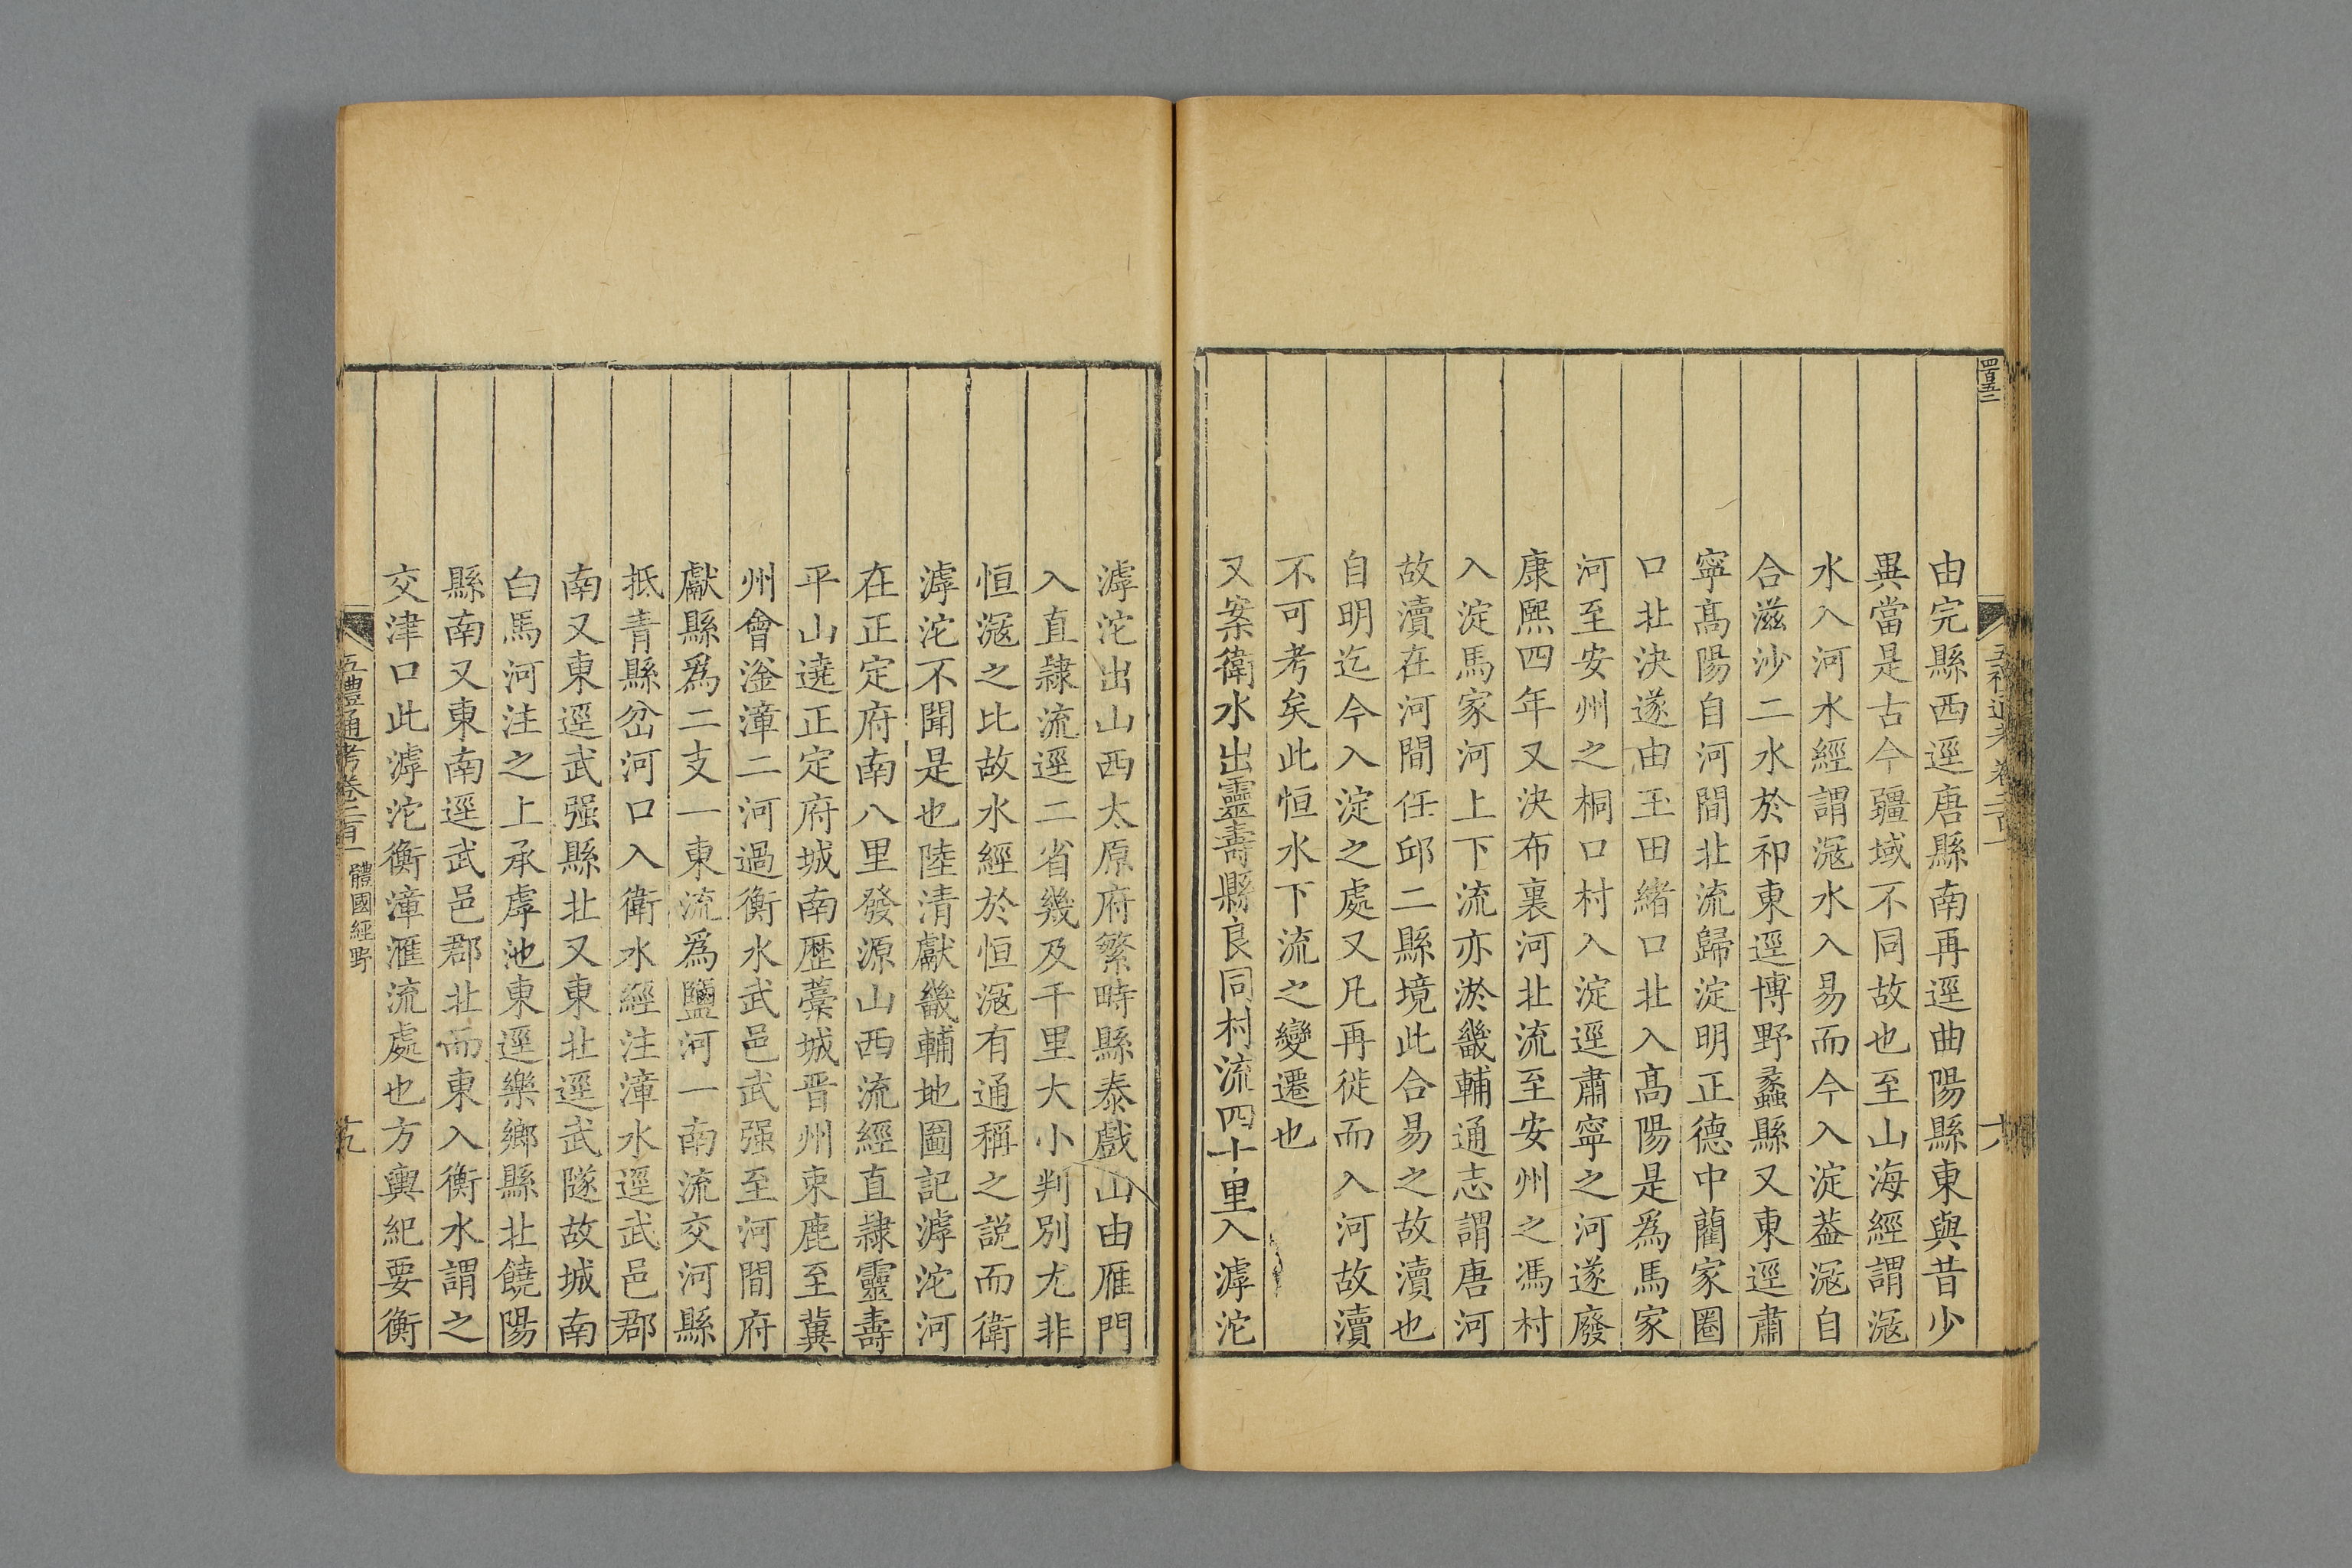 四百五二
由完縣西逕唐縣南再逕曲陽縣東與昔少
異當是古今疆域不同故也至山海經謂滱
水入河水經謂滱水入易而今入淀葢滱自
合滋沙二水於祁東逕博野蠡縣又東逕肅
寧髙陽自河間北流歸淀明正德中藺家圈
口北決遂由玉田緒口北入髙陽是爲馬家
河至安州之桐口村入淀逕肅寧之河遂廢
康熙四年又決布裏河北流至安州之馮村
入淀馬家河上下流亦淤畿輔通志謂唐河
故瀆在河間任邱二縣境此合易之故瀆也
自明迄今入淀之處又凡再徙而入河故瀆
不可考矣此恒水下流之變遷也
又案衛水出靈壽縣良同村流四十里入滹沱
滹沱出山西太原府繁畤縣泰戲山由雁門
入直隸流逕二省幾及千里大小判別尤非
恒滱之比故水經於恒滱有通稱之説而衛
滹沱不聞是也陸清獻畿輔地圖記滹沱河
在正定府南八里發源山西流經直隸靈壽
平山遶正定府城南歴藁城晋州束鹿至冀
州會滏漳二河過衡水武邑武强至河間府
獻縣爲二支一東流爲鹽河一南流交河縣
抵青縣岔河口入衛水經注漳水逕武邑郡
南又東逕武强縣北又東北逕武隧故城南
白馬河注之上承虖池東逕樂鄉縣北饒陽
縣南又東南逕武邑郡北而東入衡水謂之
交津口此滹沱衡漳滙流處也方輿紀要衡
五禮通考卷二百一 體國經野